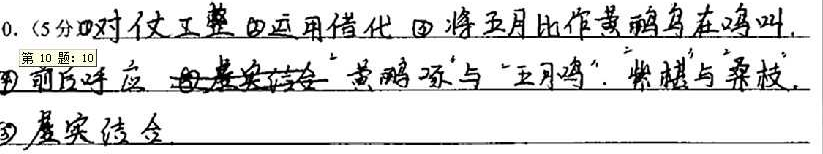 0.（5分①对仗工整 ②运用借代 ③将五月比作黄鹂鸟在鸣叫.
第 10 题: 10
④前后呼应 "黄鹂啄"与"五月鸣". "紫椹"与"桑枝".
⑤虚实结合.